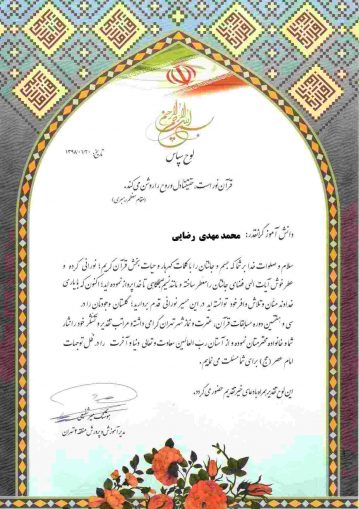 بسم الله الرحمن الرحیم
لوح سپاس
تاریخ: ۱۳۹۸/۰۱/۲۰
قرآن نور است، حقیقتا دل و روح را روشن می‌کند.
(مقام معظم رهبری)
دانش آموز گرانقدر: محمد مهدی رضایی
سلام و صلوات خدا بر شما که جسم و جانتان را با کلمات گهربار و حیات بخش قرآن کریم؛ نورانی کرده و
عطر خوش آیات الهی فضای جانتان را معطر ساخته و مانند نسیم تا خدا پرواز نموده اید؛ اکنون که با یاری
خداوند منان و تلاش وافر خود توانسته اید در این مسیر نورانی قدم بردارید؛ گلستان وجودتان را در
سی و هفتمین دوره مسابقات قرآن، عترت و نماز شهر تهران گرامی داشته و مراتب تقدیر و تشکر خود را نثار
شما و خانواده محترمتان نموده و از آستان رب العالمین سعادت و تعالی دنیا و آخرت را در ظل توجهات
امام عصر (عج) برای شما مسئلت می نماییم.
این لوح تقدیر به همراه دعای خیر تقدیم حضور می گردد.
مدیر آموزش و پرورش منطقه ۷ تهران